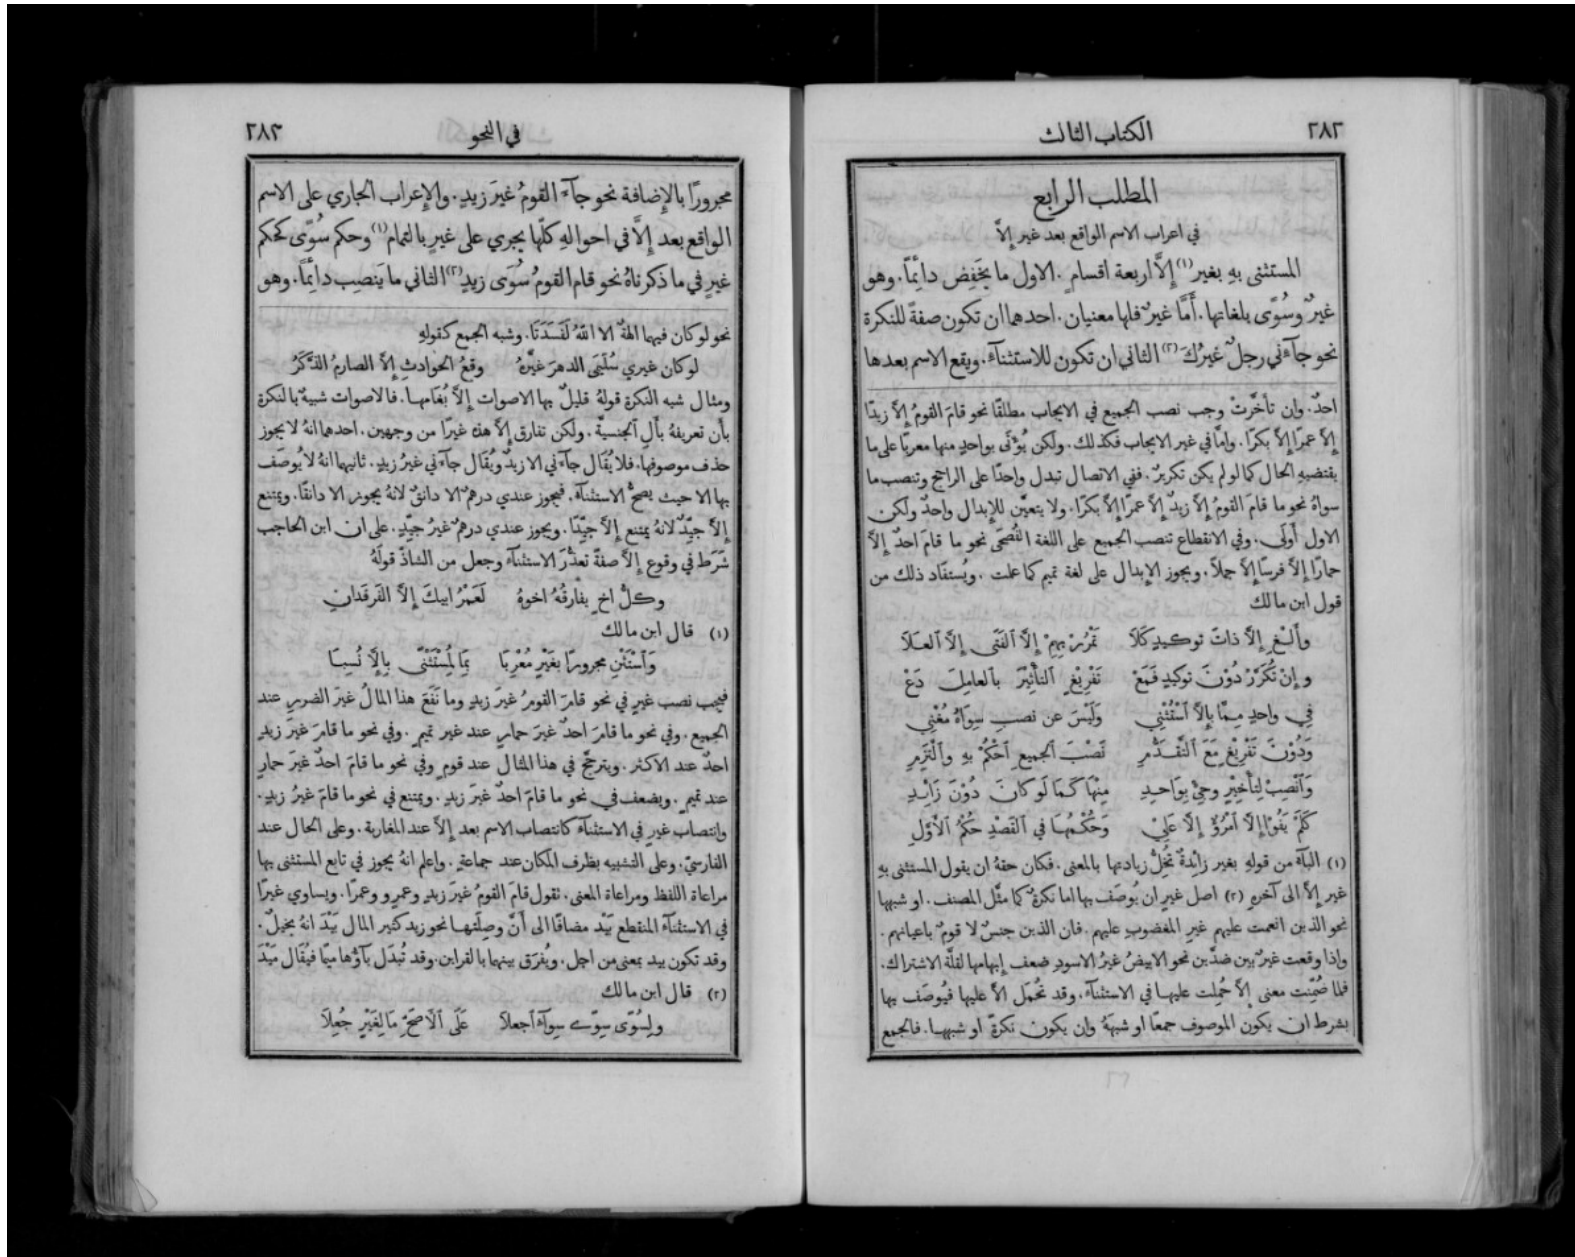 ٢٨٢
الكتاب الثالث
المطلب الرابع
في اعراب الاسم الواقع بعد غير إلاَّ
المستثنى بهِ بغير (١) إلاَّ اربعة اقسامٍ. الاول ما يخفِض دائِمًا. وهو
غيرٌ وسُوًى بلغاتها. أَمَّا غيرٌ فلها معنيان. احدهما ان تكون صفةً للنكرة
نحو جآءَني رجلٌ غيرُكَ (٢) الثاني ان تكون للاستثنآءِ. ويقع الاسم بعدها
احدٌ. وإن تأخَّرتْ وجب نصب الجميع في الايجاب مطلقًا نحو قامَ القومُ إلاَّ زيدًا
إلاَّ عمرًا إلاَّ بكرًا. وامَّا في غير الايجاب فكذلك. ولكن يُؤتَى بواحدٍ منها معربًا على ما
يقتضيهِ الحال كما لو لم يكن تكريرٌ. ففي الاتصال تبدل واحدًا على الراجح وتنصب ما
سواهُ نحو ما قامَ القومُ إلاَّ زيدٌ إلاَّ عمرًا إلاَّ بكرًا. ولا يتعيَّن للإبدال واحدٌ ولكن
الاول أَولَى. وفي الانقطاع تنصب الجميع على اللغة الفُصحَى نحو ما قامَ احدٌ إلاَّ
حمارًا إلاَّ فرسًا إلاَّ جملاً. ويجوز الإبدال على لغة تميم كما علمت. ويُستفَاد ذلك من
قول ابن مالك
وأَلْغِ إلاَّ ذاتَ توكيدٍ كَلاَ تَمْرُرْ بِهِمْ إلاَّ الفَتَى إلاَّ العَلاَ
وإنْ تُكَرَّرْ دُوْنَ توكيدٍ فَمَعْ تَفْرِيْغٍ التَأْثِيْرَ بالعامِلِ دَعْ
فِي واحدٍ مِمَّا بِإلاَّ اسْتُثْنِي وَلَيْسَ عن نصبِ سِوَاهُ مُغْنِي
وَدُوْنَ تَفْرِيْغٍ مَعَ التَّقَدُّمِ نَصْبَ الجميعِ احْكُمْ بهِ والْتَزِمِ
وَانْصِبْ لِتَأْخِيْرٍ وجِئْ بِوَاحِدِ مِنْهَا كَمَا لَو كانَ دُوْنَ زَائِدِ
كَلَمْ يَفُوْا إلاَّ امْرُؤٌ إلاَّ عَلِيْ وَحُكْمُهَا في القَصْدِ حُكْمُ الأَوَّلِ
(١) البآءُ من قولهِ بغير زائِدةٌ تُخِلُّ زيادتها بالمعنى. فكان حقهُ ان يقول المستثنى بهِ
غير إلاَّ الى آخرهِ (٢) اصل غيرٍ ان يُوصَف بها اما نكرةٌ كما مثَّل المصنف. او شبهها
نحو الذين انعمت عليهم غيرِ المغضوب عليهم. فان الذين جنسٌ لا قومٌ باعيانهم.
وإذا وقعت غيرٌ بين ضدَّين نحو الابيضُ غيرُ الاسودِ ضعف إبهامها لقلَّة الاشتراك.
فلما ضُمِّنت معنى إلاَّ حُمِلت عليها في الاستثنآءِ. وقد تُحمَل الاَّ عليها فيُوصَف بها
بشرط ان يكون الموصوف جمعًا او شبهَهُ وان يكون نكرةً او شبهها. فالجمع
٢٨٣
في النحو
مجرورًا بالإضافة نحو جآءَ القومُ غيرَ زيدٍ. والإعراب الجاري على الاسم
الواقع بعد إلاَّ في احوالهِ كلّها يجري على غيرٍ بالتمام (١) وحكم سُوًى كحكم
غيرٍ في ما ذكرناهُ نحو قام القومُ سُوَى زيدٍ (٢) الثاني ما ينصِب دائِمًا. وهو
نحو لو كان فيهما الهةٌ الا اللهُ لَفَسَدَتَا. وشبه الجمع كقولهِ
لو كان غيري سُلَيمَى الدهرَ غيَّرهُ وقعُ الحوادثِ إلاَّ الصارمُ الذَّكَرُ
ومثال شبه النكرة قولهُ قليلٌ بها الاصوات إلاَّ بُغَامها. فالاصوات شبيهٌ بالنكرة
بأن تعريفهُ بأَلِ الجنسيَّة. ولكن تفارق إلاَّ هذه غيرًا من وجهين. احدهما انهُ لا يجوز
حذف موصوفها. فلا يُقَال جآءَني الا زيدٌ ويُقَال جآءَني غيرُ زيدٍ. ثانيهما انهُ لا يُوصَف
بها الا حيث يصحُّ الاستثنآءُ. فيجوز عندي درهمٌ الا دانقٌ لانهُ يجوز الا دانقًا. ويمتنع
إلاَّ جيِّدٌ لانهُ يمتنع إلاَّ جيِّدًا. ويجوز عندي درهمٌ غيرُ جيِّدٍ. على ان ابن الحاجب
شَرَط في وقوع إلاَّ صفةً تعذُّرَ الاستثنآءِ وجعل من الشاذّ قولَهُ
وكلُّ اخٍ يفارقُهُ اخوهُ لَعَمْرُ ابيكَ إلاَّ الفَرقَدَانِ
(١) قال ابن مالك
وَاسْتَثْنِ مجرورًا بغَيْرٍ مُعْرَبَا بِمَا لِمُسْتَثْنًى بِإلاَّ نُسِبَا
فيجب نصب غيرٍ في نحو قامَ القومُ غيرَ زيدٍ وما نَفَعَ هذا المالُ غيرَ الضررِ عند
الجميع. وفي نحو ما قامَ احدٌ غيرَ حمارٍ عند غير تميمٍ. وفي نحو ما قامَ غيرَ زيدٍ
احدٌ عند الاكثر. ويترجَّح في هذا المثال عند قومٍ وفي نحو ما قامَ احدٌ غيرَ حمارٍ
عند تميمٍ. ويضعف في نحو ما قامَ احدٌ غيرَ زيدٍ. ويمتنع في نحو ما قامَ غيرُ زيدٍ.
وانتصاب غيرٍ في الاستثنآءِ كانتصاب الاسم بعد إلاَّ عند المغاربة. وعلى الحال عند
الفارسيّ. وعلى التشبيه بظرف المكان عند جماعةٍ. واعلم انهُ يجوز في تابع المستثنى بها
مراعاة اللفظ ومراعاة المعنى. تقول قامَ القومُ غيرَ زيدٍ وعمرٍو وعمرًا. ويساوي غيرًا
في الاستثنآءِ المنقطع بَيْدَ مضافًا الى أَنَّ وصِلَتها نحو زيدٌ كثير المال بَيْدَ انهُ بخيلٌ.
وقد تكون بيد بمعنى من اجل. ويُفرَق بينهما بالقراين. وقد تُبدَل بآؤُها ميمًا فيُقَال مَيْدَ
(٢) قال ابن مالك
ولِسُوًى سِوًى سِوَآءٍ اجعلاَ عَلَى الأَصَحّ مَا لِغَيْرٍ جُعِلاَ